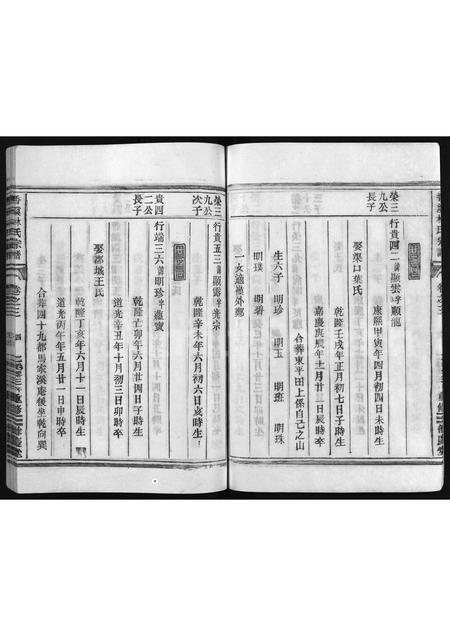 榮三
九公
長子
行貴四二諱顯雲字順龍
康熙甲寅年四月初四日未時生
娶渠口葉氏
乾隆壬戌年正月初七日子時生
嘉慶丙辰年十一月廿一日辰時卒
合葬東平田上係自己之山
生六子 明珍 明玉 明班 明珠
明璞 明碧
一女適遂外鄭
榮三
九公
次子
行貴五三諱顯露字光宗
乾隆辛未年六月初六日亥時生
氏
貴四
二公
長子
行端三六諱明珍字蘊寶
乾隆己卯年六月廿四日子時生
道光辛丑年十月初三日卯時卒
娶部城王氏
乾隆丁亥年六月十一日辰時生
道光丙午年五月廿一日申時卒
合葬四十九都馬家溪庵後坐乾向巽